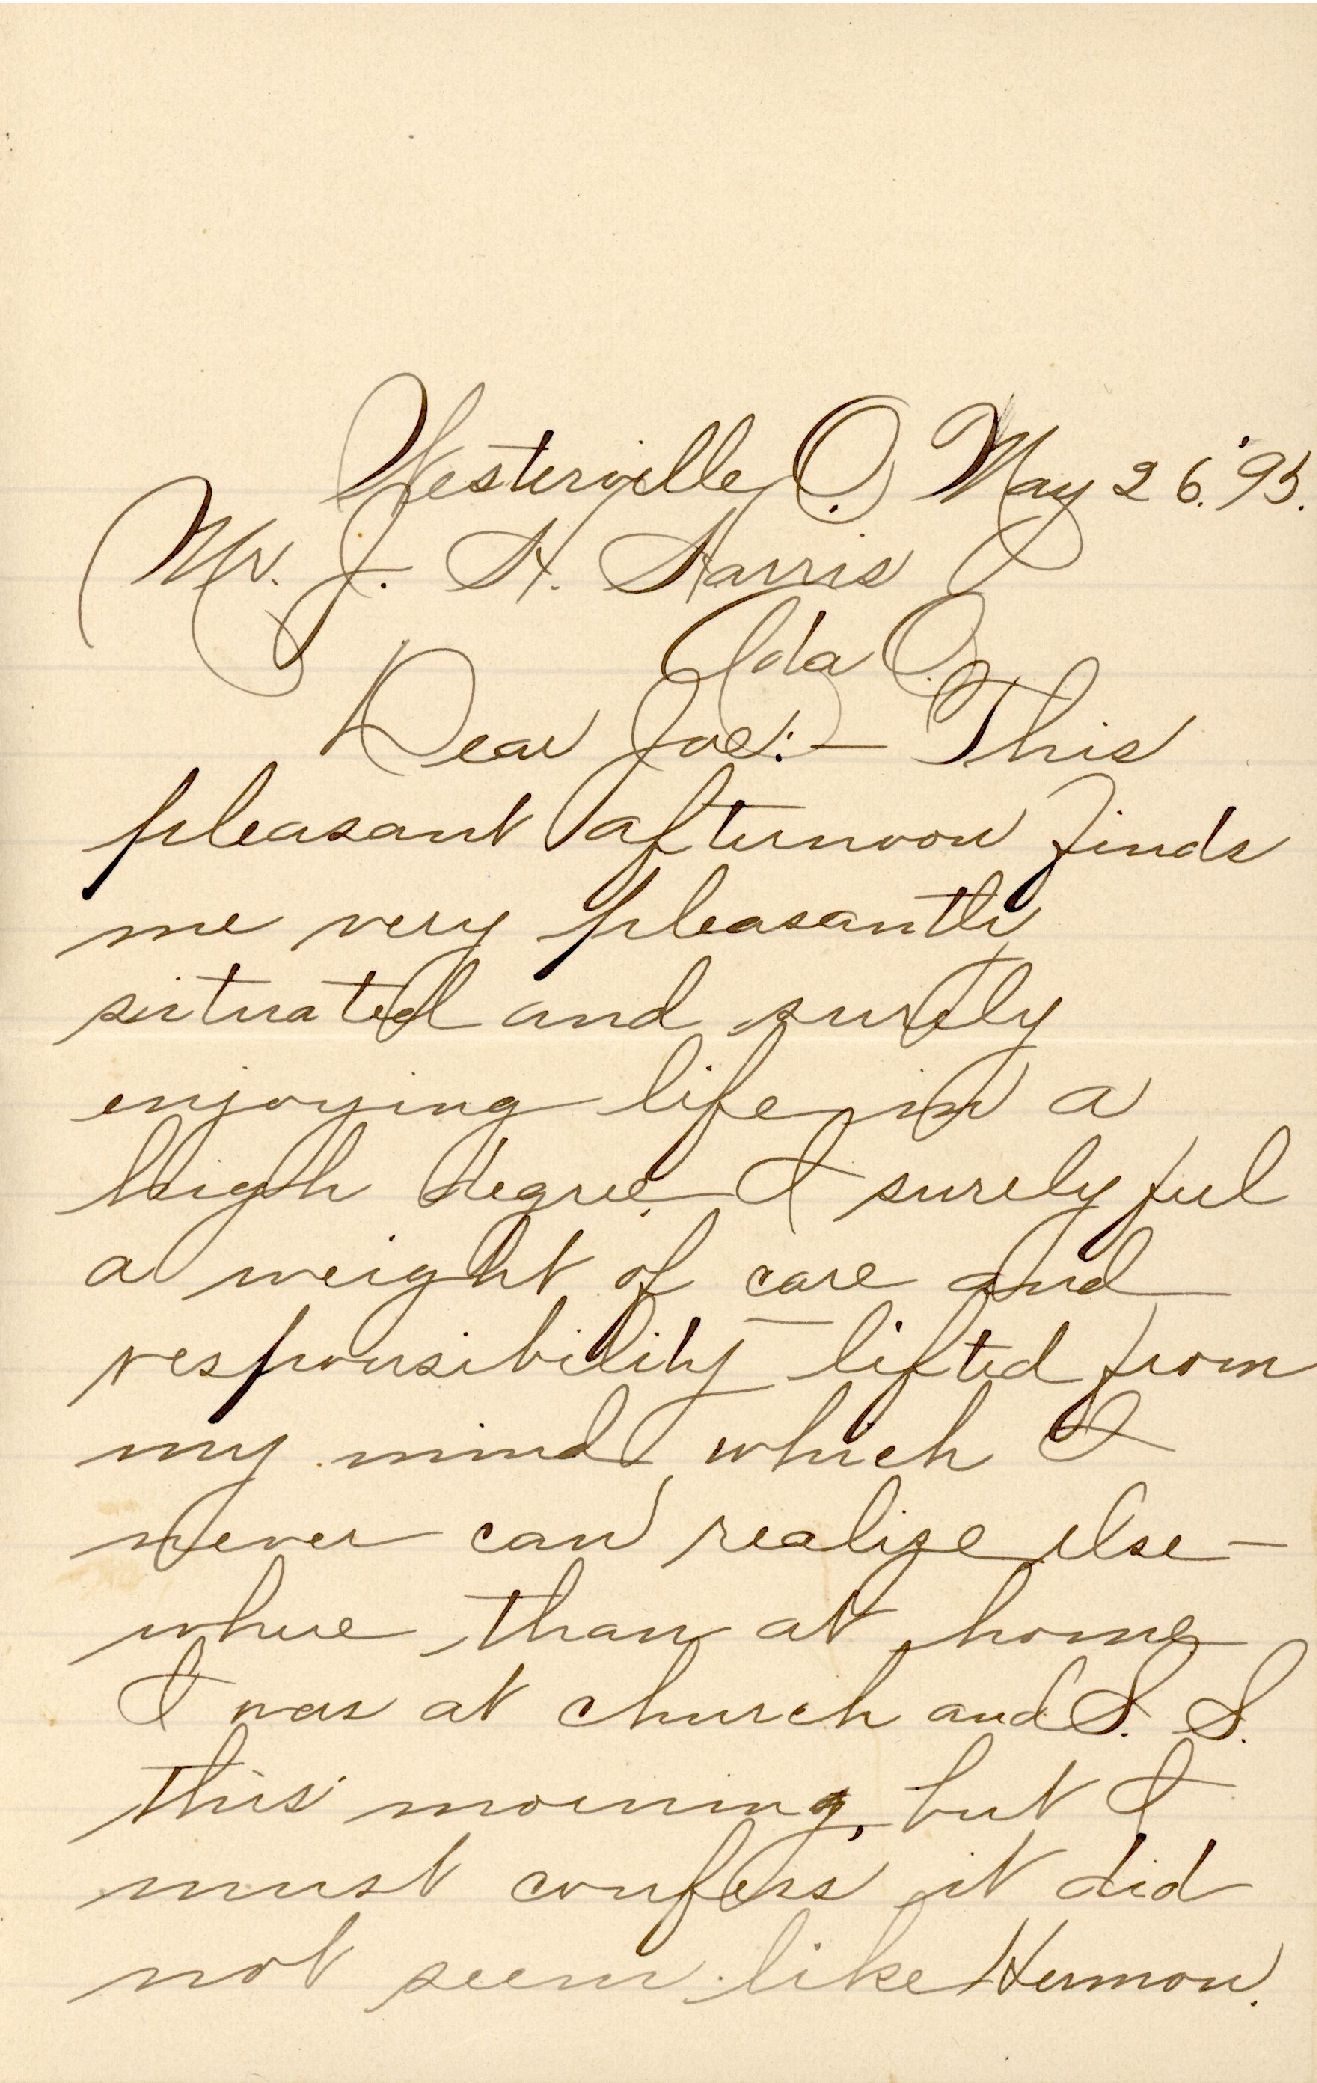 Westerville, O. May 26. '95.
Mr. J. H. Harris
Ida O.
Dear Joe:— This
pleasant afternoon finds
me very pleasantly
situated and surely
enjoying life in a
high degree. I surely feel
a weight of care and
responsibility lifted from
my mind, which I
never can realize else-
where than at home
I was at church and S. S.
this morning, but I
must confess it did
not seem like Hermon.